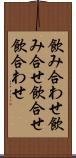 飲み合わせ飲
み合せ飲合せ
飲合わせ